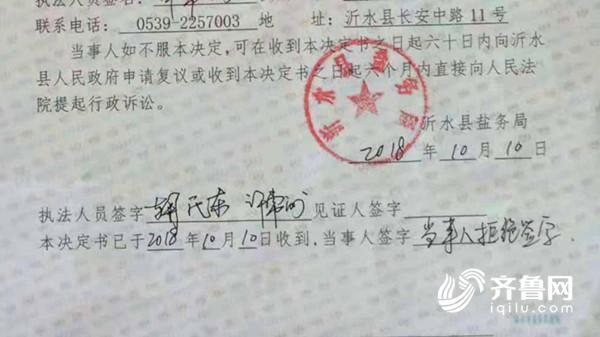 执法人员签名：
联系电话：0539-2257003 地 址：沂水县长安中路11号
当事人如不服本决定，可在收到本决定书之日起六十日内向沂水
县人民政府申请复议或收到本决定书之日起六个月内直接向人民法
院提起行政诉讼。
沂水县盐务局
沂水县盐务局
2018 年 10 月 10 日
执法人员签字 见证人签字
本决定书已于2018年10月10日收到，当事人签字 当事人拒绝签字.
齐鲁网
iqilu.com